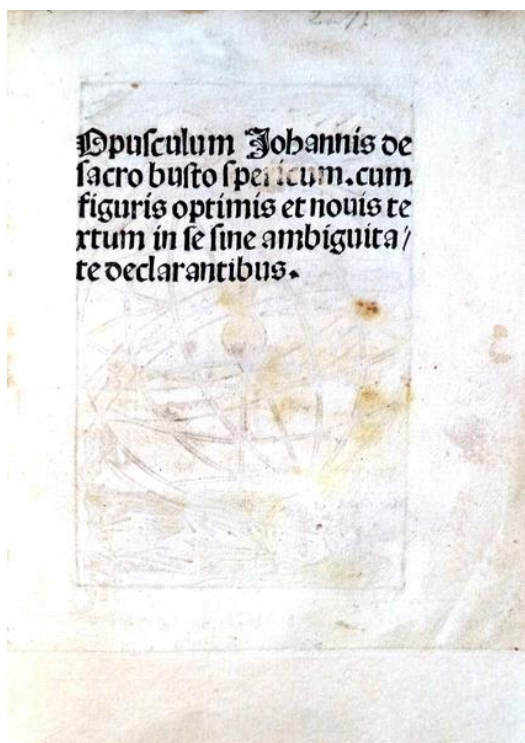 Opusculum Johannis de
sacro busto spericum. cum
figuris optimis et nouis te
xtum in se sine ambiguita/
te declarantibus.